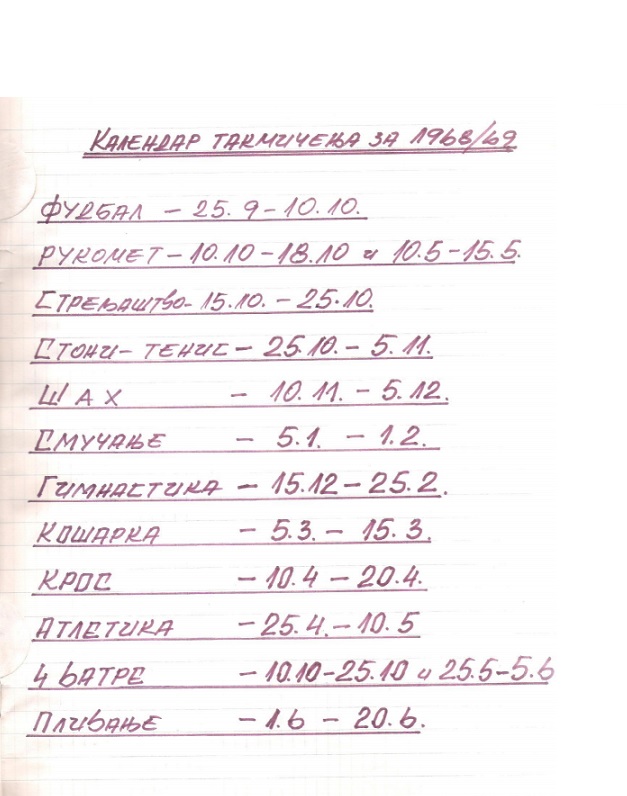 КАЛЕНДАР ТАКМИЧЕЊА ЗА 1968/69
ФУДБАЛ – 25.9–10.10.
РУКОМЕТ – 10.10–18.10 и 10.5–15.5.
СТРЕЉАШТВО – 15.10. – 25.10.
СТОНИ – ТЕНИС – 25.10. – 5.11.
ШАХ – 10.11. – 5.12.
СМУЧАЊЕ – 5.1. – 1.2.
ГИМНАСТИКА – 15.12 – 25.2.
КОШАРКА – 5.3. – 15.3.
КРОС – 10.4 – 20.4.
АТЛЕТИКА – 25.4. – 10.5
4 ВАТРЕ – 10.10–25.10 и 25.5–5.6
ПЛИВАЊЕ – 1.6 – 20.6.